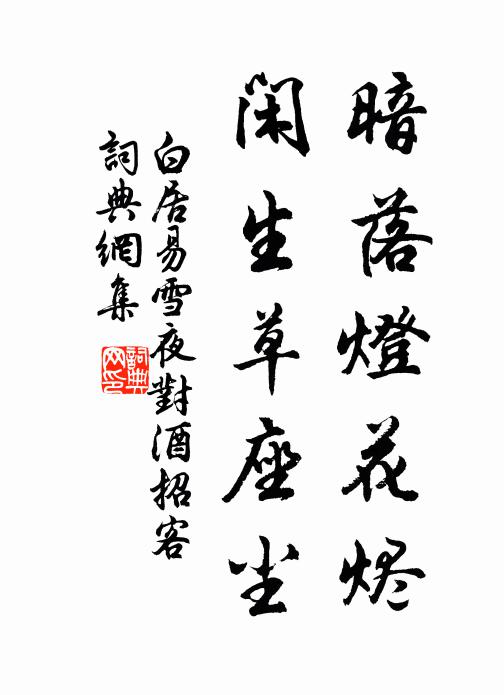 暗落燈花烬
閑生草座尘
白居易雪夜對酒招客
詞典網集
詞典
网印